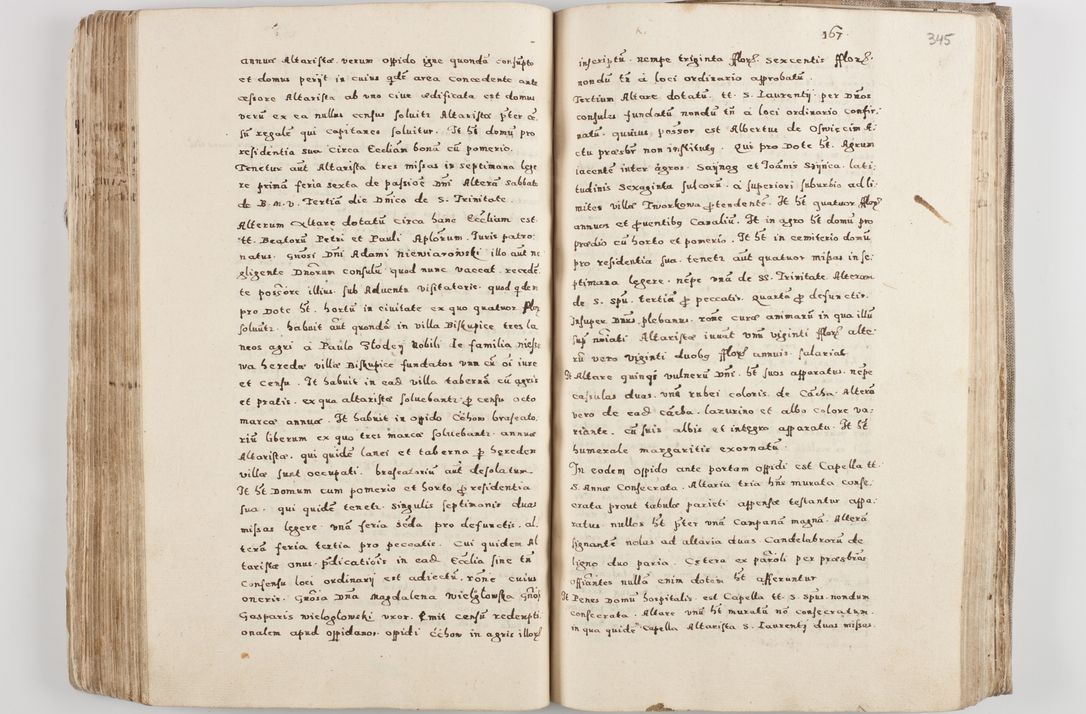 annuæ Altaristæ. verum oppido igne quondā consūpto
et domus perijt in cuius qdē area Concedente ante
cessore Altarista ab uno ciue ædificata est domus
verū ex ea nullus census soluitr Altaristæ pter cē
sū regalē qui capitaneo soluitur. It ht domū pro
residentia sua Circa Eccliam bonā cū pomerio.
Tenetur aūt Altarista tres missas in septimana lege
re primā feria sexta de passioē Dni Alterā Sabbato
de B. M. V. Tertiā die Dnico de S. Trinitate.
Alterum Altare dotatū Circa hanc Eccliam est
tt. Beatorū Petri et Pauli Aplorum. Juris patro:
natus. Gnosi Dni Adami Niewiarowski illo aut ne
gligente Dnorum consulū quod nunc vaccat. recedē
te possōre illius sub Aduentū visitatoris. quod qdem
pro Dote ht. hortū in ciuitate ex quo quatuor flor
soluūtr. habuit aūt quondā in villa Biskupice tres la
neos agri à Paulo Zlodey Nobili de familia niesu
wa heredæ villæ Biskupice fundatos vna cū oī iure
et censu. It habuit in ead villa tabernā cū agris
et pratis. ex qua altaristæ soluebantr p censu octo
marcæ annuæ. It habuit in opido Cchow braseato
riū liberum ex quo tres marcæ soluebantr annuæ
Altaristæ. qui quidē lanei et taberna p heredem
villæ sunt occupati. braseatoriū aut desolatum
It ht Domum cum pomerio et horto p residentia
sua. qui quidē tenetr singulis septimanis duas
missas legere. vnā feria scda pro defunctis. al
terā feria tertia pro peccatis. Cui quidem Al
taristæ onus. pdicatiōis in ead Ecclia sine tn
Consensu loci ordinarij est adiectū. rōne cuius
oneris. Gnosa Dna Magdalena Wielglowska Gnosi
Gasparis Wieloglowski vxor. Emit censū redempti
onalem apud oppidanos oppidi Cchow in agris illorū
167.
345
inscriptū. nempe triginta fflor. Sexcentis fflor.
nondū tn à loci ordinario approbatū.
Tertium Altare dotatū. tt. S. Laurentij per Dnos
consules fundatū nondū tn à loci ordinario confir:
matū. quouis possor est Albertus de Oswiecim A:
ctu præsbr non institutus. Qui pro Dote ht. Agrum
iacentē inter agros. Saynog et Joānis Szynca. lati:
tudinis Sexaginta sulcorū. à superiori suburbio ad li:
mites villæ Tworkowa ptendente. It ht quatuor fflor
annuos et puentibus Canaliū. It in agro ht domū pro
prædio cū horto et pomerio. It ht in cemiterio domū
pro residentia sua. tenetr aūt quatuor missas in se:
ptimana legere. nēpe vnā de SS. Trinitate. Alteram
de S. Spū. tertiā p peccatis. Quartā p defunctis.
Insuper Dnus plebanus. rōne curæ animarū in qua illū
sup nōiati Altaristæ iuuāt vnū viginti fflor alte:
rū vero viginti duobus fflor annuis. salariat
It Altare quinque vulnerū Dni. ht suos apparatus. nēpe
casulas duas. vnā rubei coloris. de Cācha. Alterā
vero de ead cācha. lazurino et albo colore va:
riante. cū suis albis et integro apparatu. It ht
humerale margaritis exornatū.
In eodem oppido ante portam oppidi est Capella tt.
S. Annæ Consecrata. Altaria tria hns murata conse:
crata prout tabulæ parieti appensæ testantur. appa:
ratus nullos ht pter vnā Campanā magnā. Alterā
signantē nolas ad altaria duas. Candelabrorū de
ligno duo paria. Cætera ex paroli per præsbros
offiantes nullā enim dotem ht afferuntur
It Penes Domū hospitalis. est Capella tt. S. Spūs. nondum
consecrata. Altare vnū ht muratū nō consecratum.
in qua quidē Capella Altarista S. Laurentij duas missas.